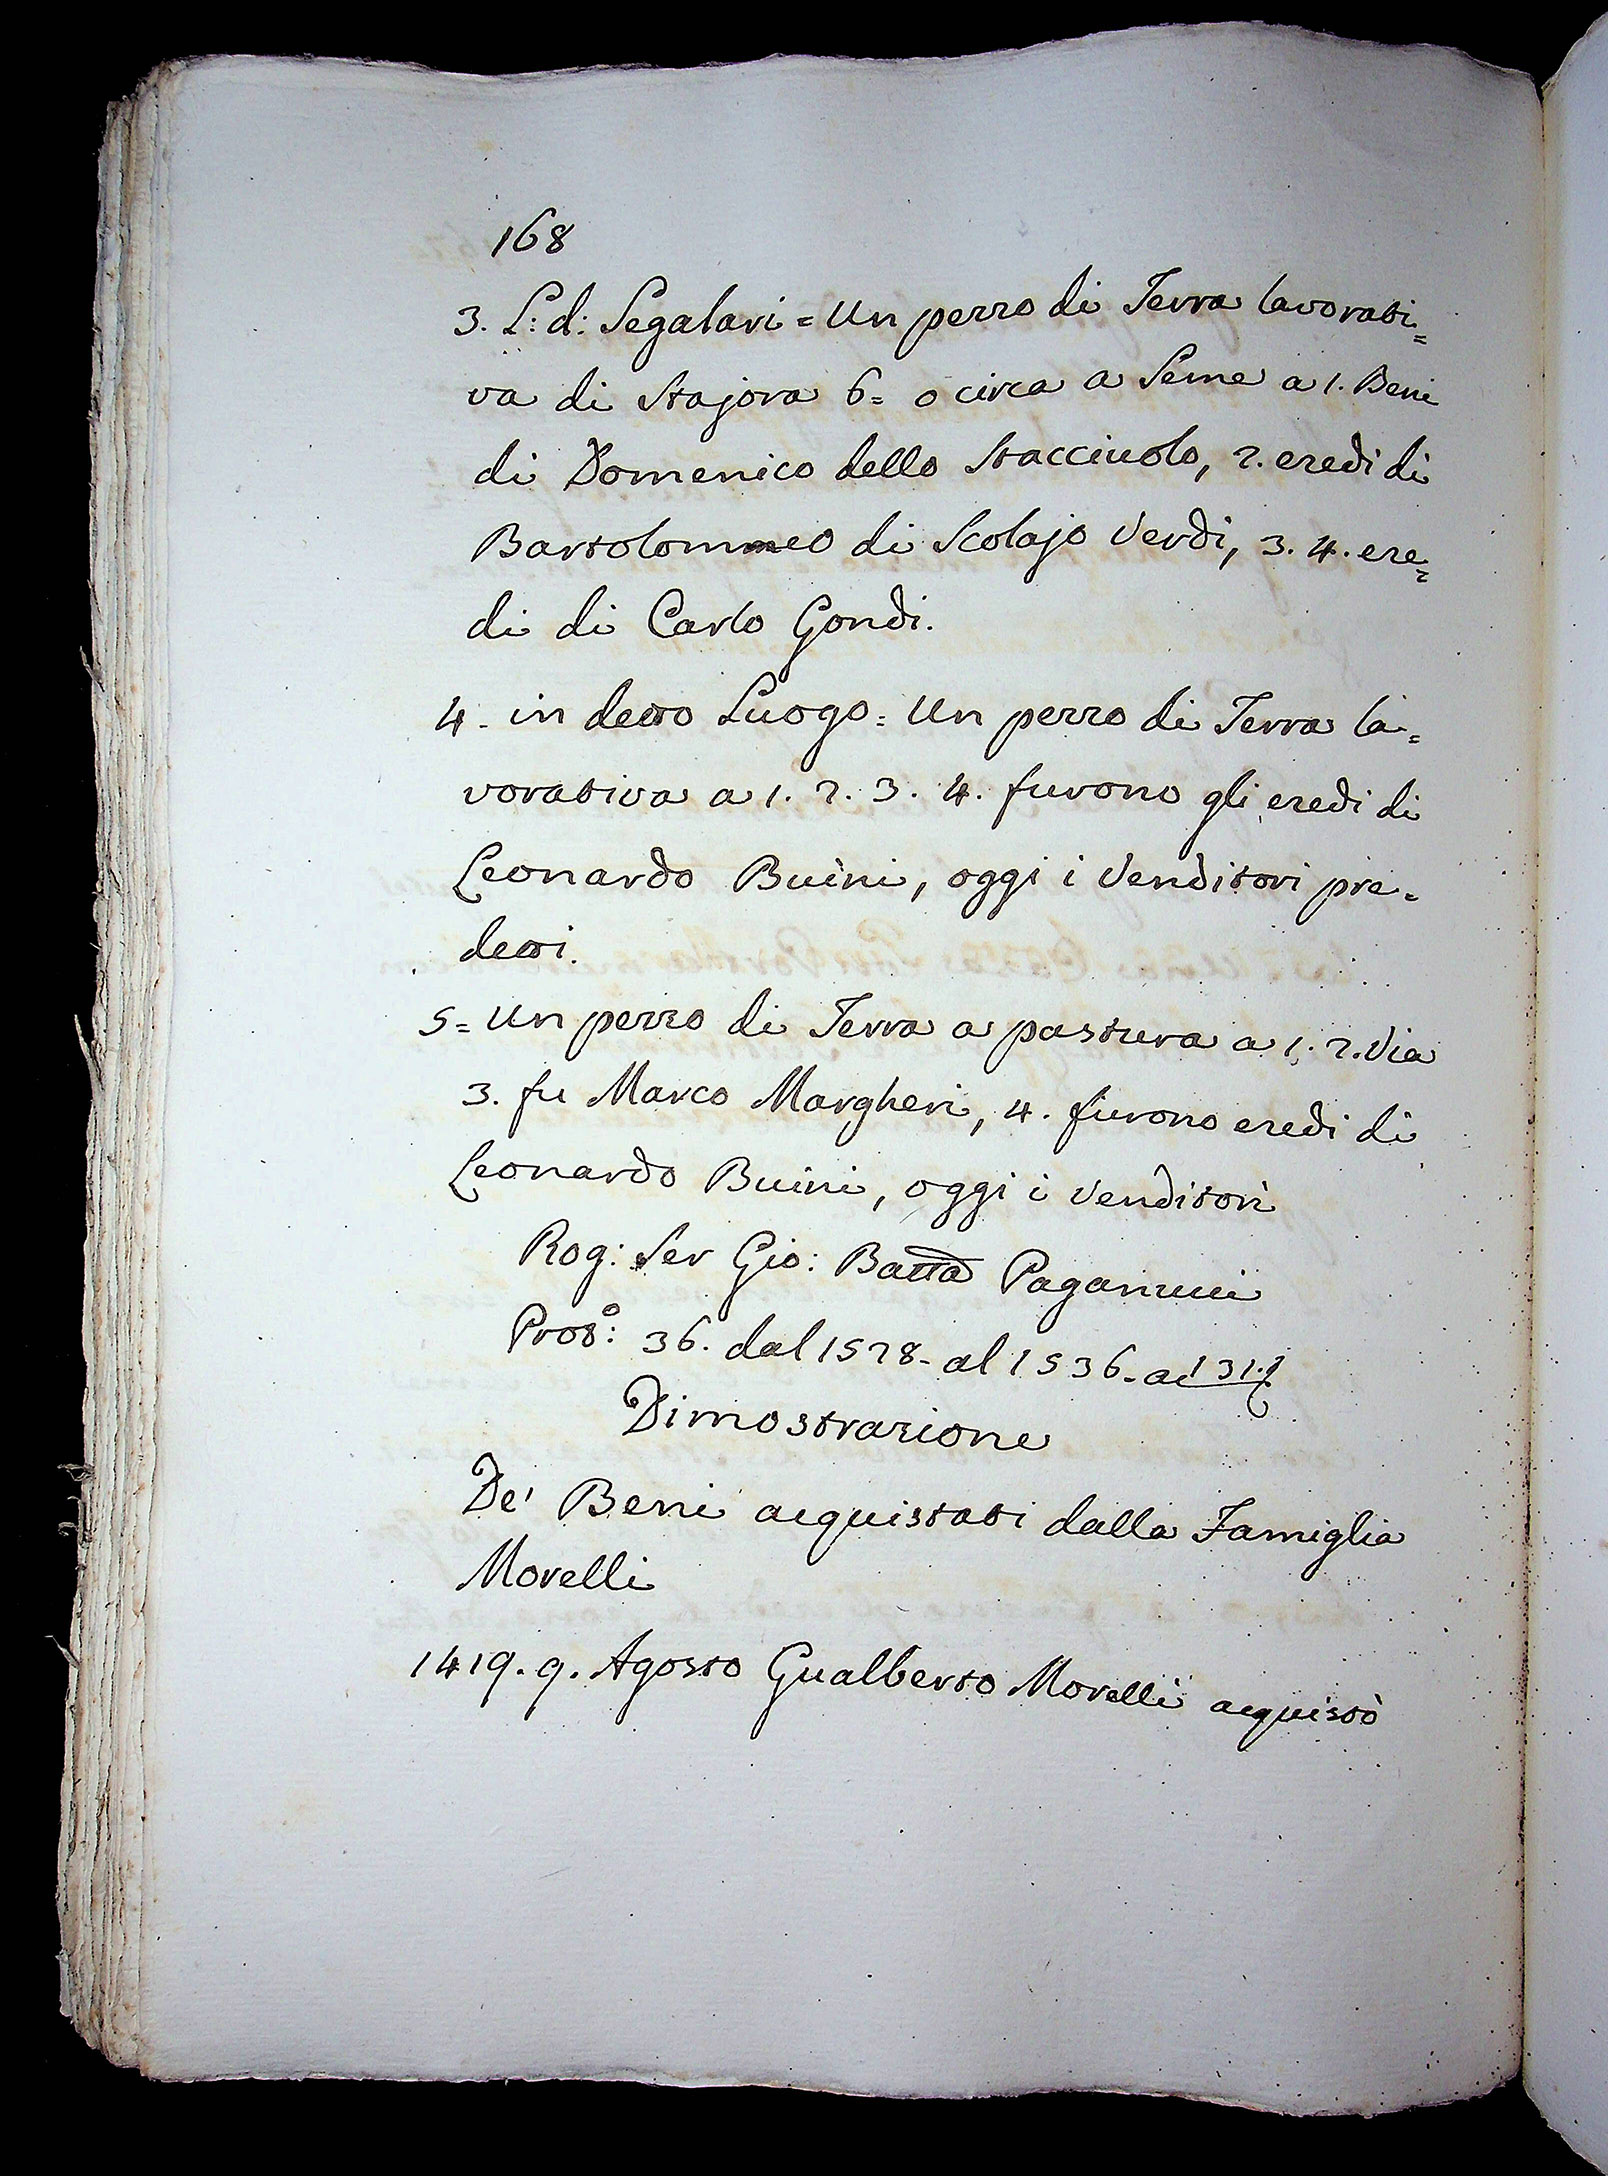 168
3. L: d: Segalari = Un pezzo di Terra lavorati=
va di Stajora 6= o circa a Seme a 1. Beni
di Domenico dello Stacciuolo, 2. eredi di
Bartolommeo di Scolajo Verdi, 3. 4. ere=
di di Carlo Gondi.
4. in detto Luogo = Un pezzo di Terra la=
vorativa a 1. 2. 3. 4. furono gli eredi di
Leonardo Buini, oggi i Venditori pre=
detti.
5= Un pezzo di Terra a pastura a 1. 2. Via
3. fu Marco Margheri, 4. furono eredi di
Leonardo Buini, oggi i Venditori
Rog: Ser Gio: Batta Paganucci
Prot:º 36. dal 1528. al 1536. ac 131.
Dimostrazione
De' Beni acquistati dalla Famiglia
Morelli
1419. 9. Agosto Gualberto Morelli acquistò